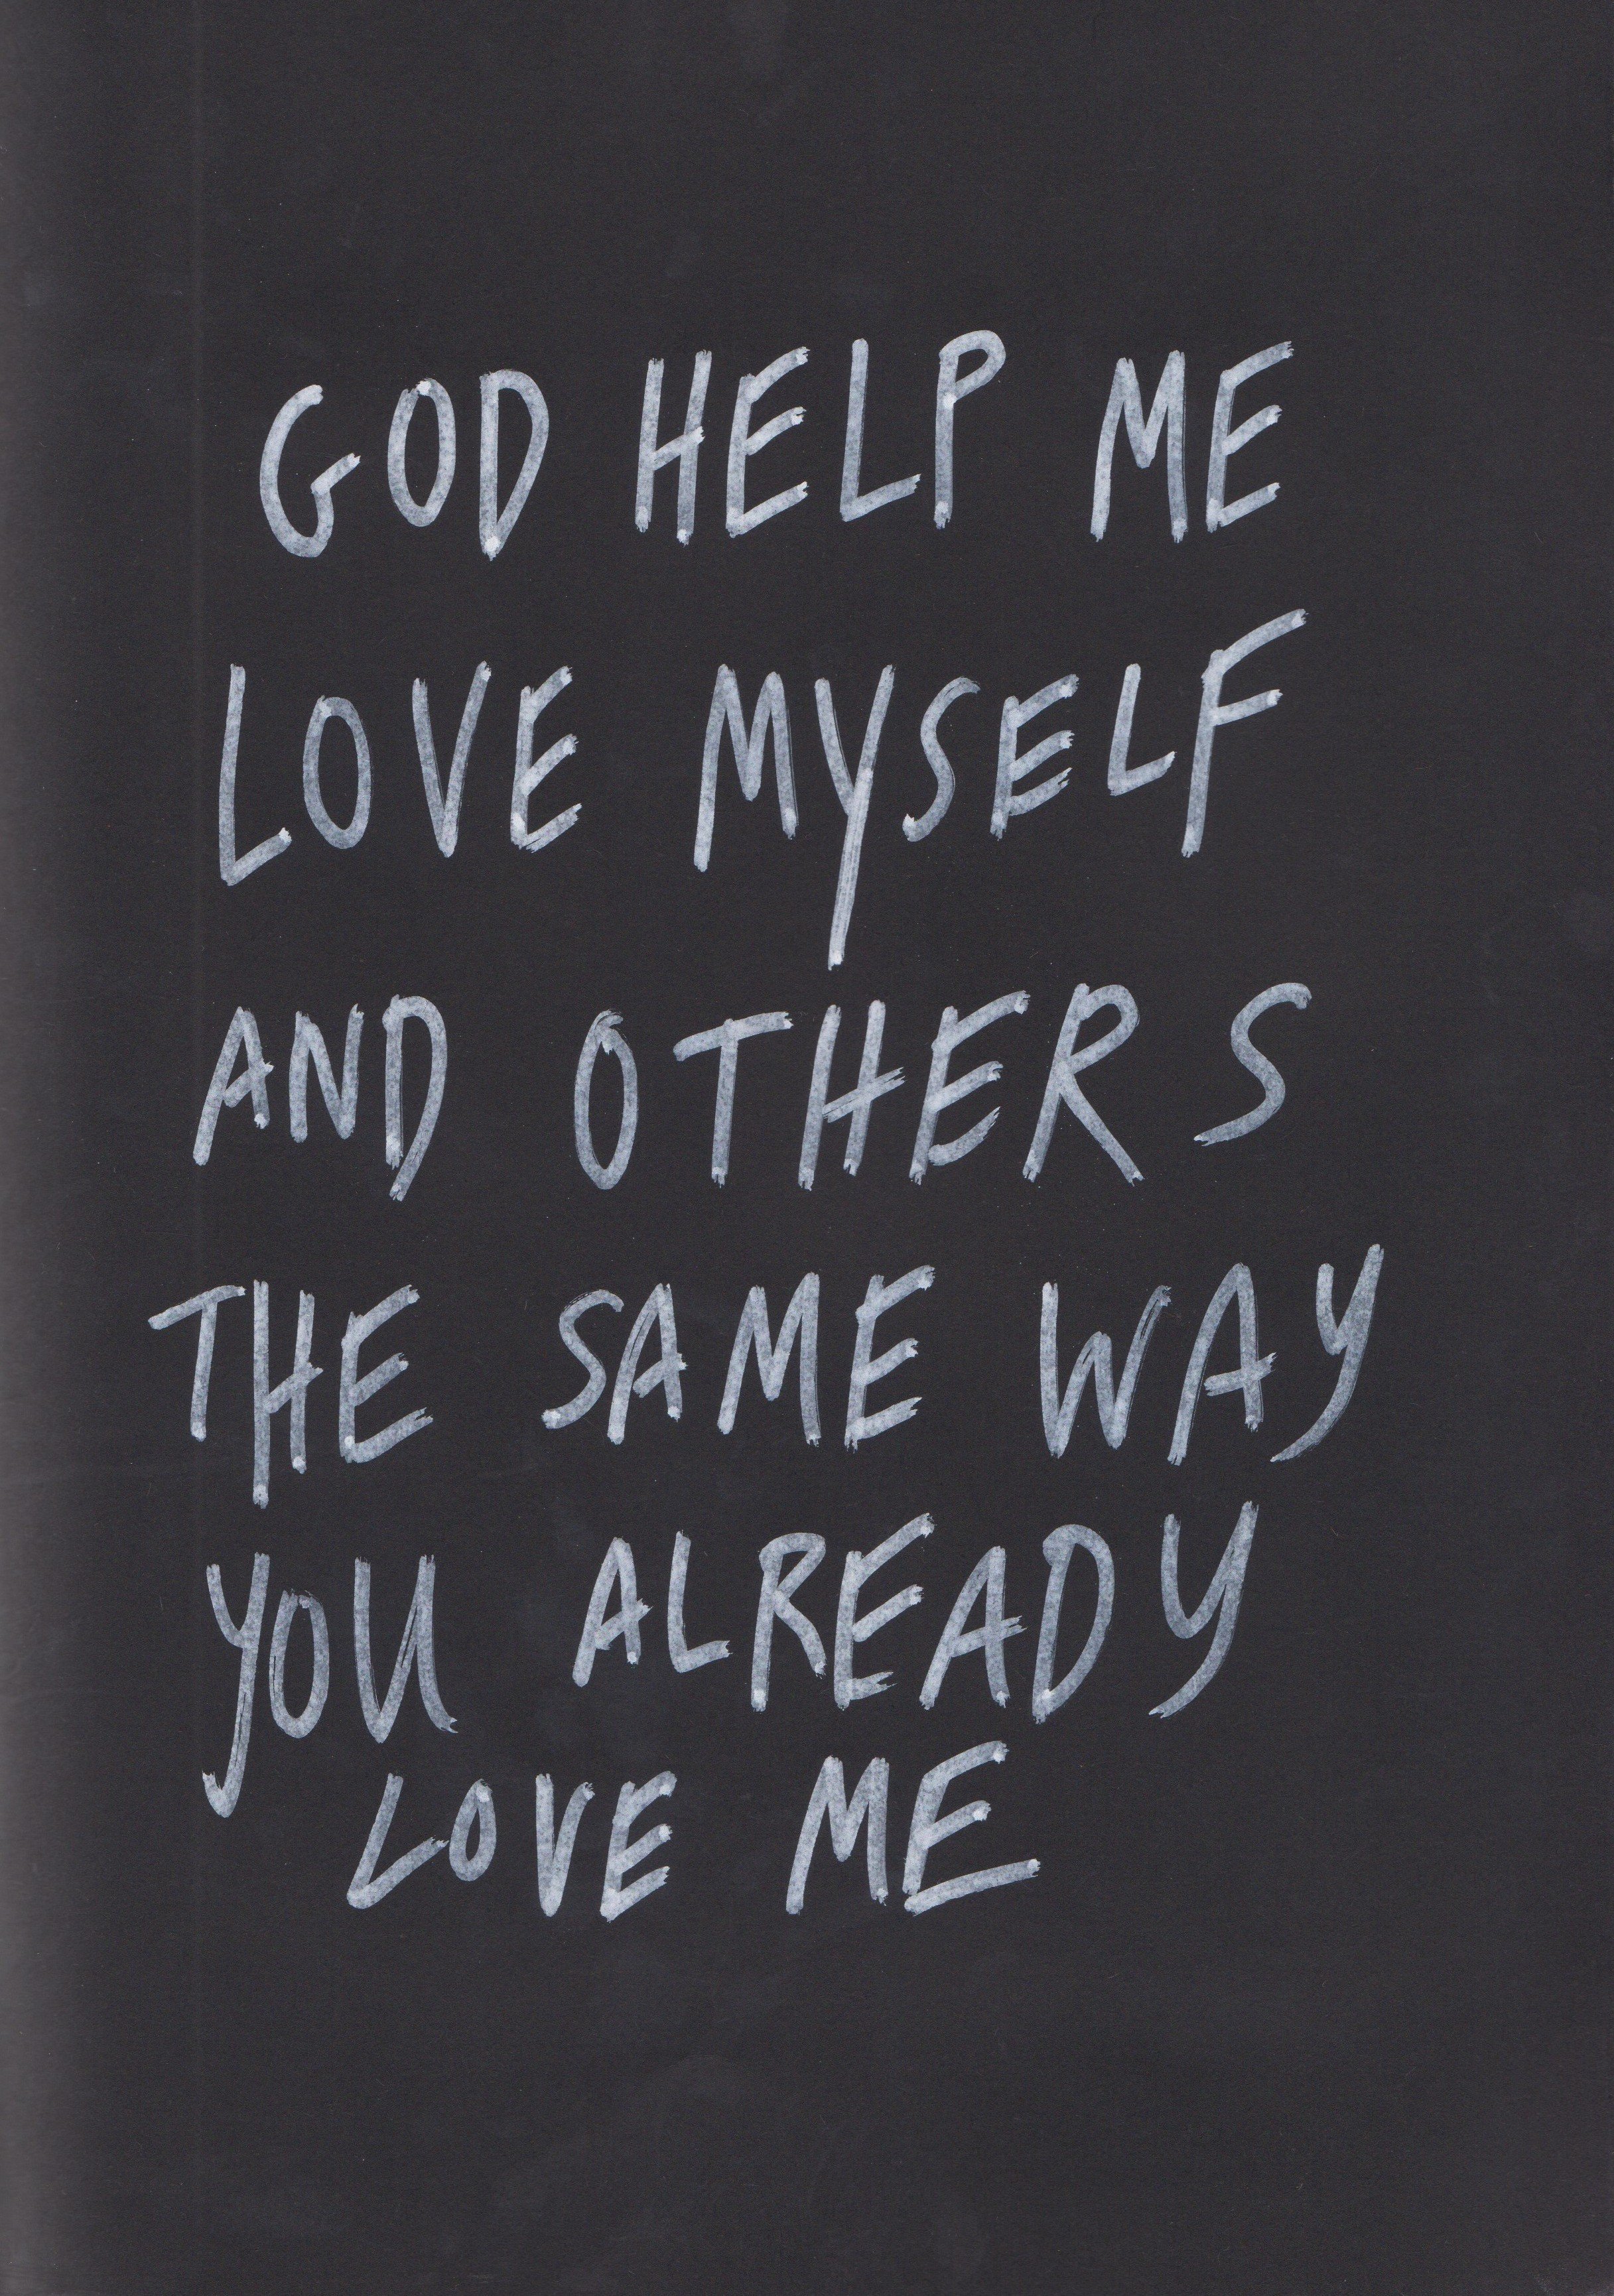 GOD HELP ME
LOVE MYSELF
AND OTHERS
THE SAME WAY
YOU ALREADY
LOVE ME